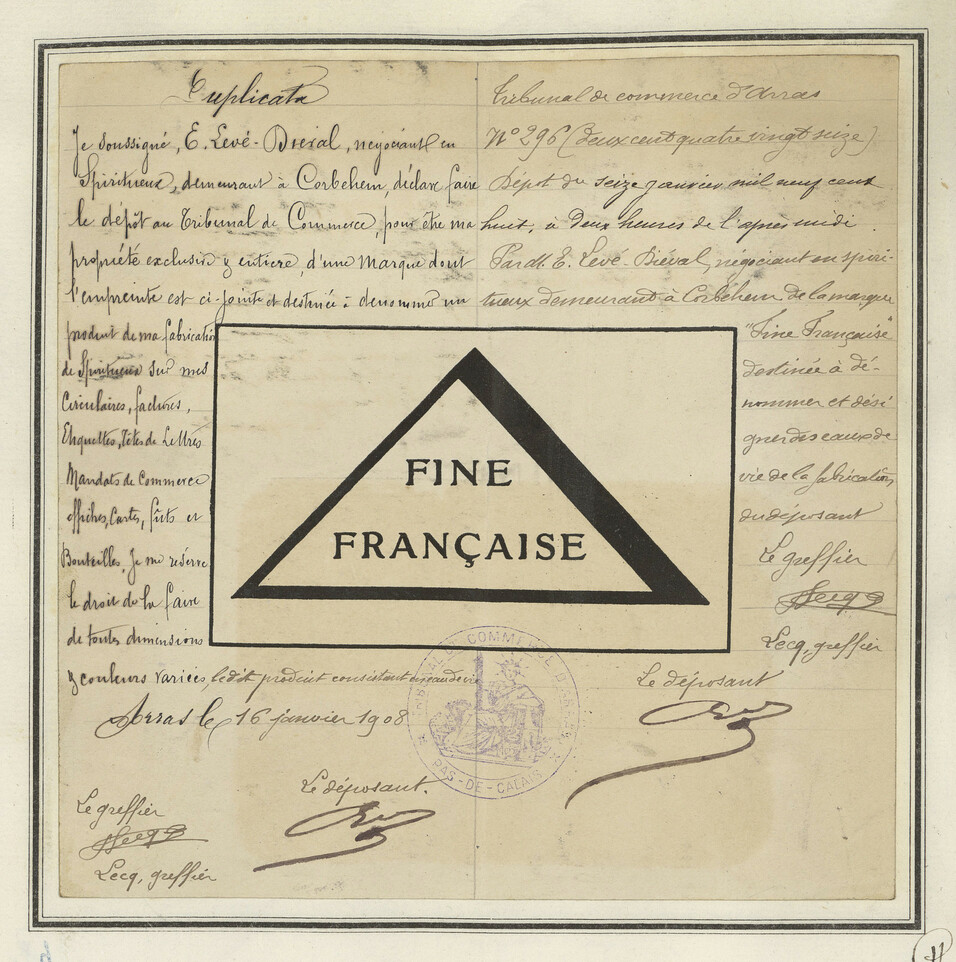 Duplicata
Je soussigné, E. Levé-Bréval, négociant en
Spiritueux, demeurant à Corbehem, déclare faire
le dépôt au Tribunal de Commerce, pour être ma
propriété exclusive & entière, d'une Marque dont
l'empreinte est ci-jointe et destinée à denommer un
produit de ma fabrication
de Spiritueux sur mes
Circulaires, factures,
Etiquettes, Têtes de Lettres
Mandats de Commerce
affiches, Cartes, fûts et
Bouteilles. Je me réserve
le droit de la faire
de toutes dimensions
& couleurs variées, ledit produit consistant en eau de vie
Arras le 16 janvier 1908
Le greffier
Lecq, greffier
Le déposant.
Tribunal de commerce d'Arras
N° 296 (deux cent quatre vingt seize)
Dépôt du seize janvier mil neuf cent
huit, à deux heures de l'après midi.
Par dt. E. Levé-Biéval, négociant en spiri-
tueux demeurant à Corbéhem de la marque
"Fine Française"
destinée à dé-
nommer et dési
gner des eaux de
vie de la fabrication
du déposant
Le greffier
Lecq, greffier
Le déposant
FINE
FRANÇAISE
TRIBUNAL DE COMMERCE D'ARRAS
PAS-DE-CALAIS